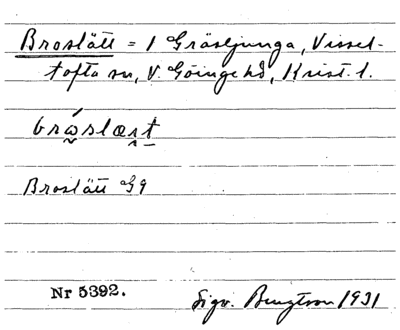 Broslätt = 1 Gräsljunga, Vissel-
tofta sn, V. Göinge hd, Krist. l.
bråslæt
Broslätt G9
Nr 5392.
Sigv. Bengtson 1931